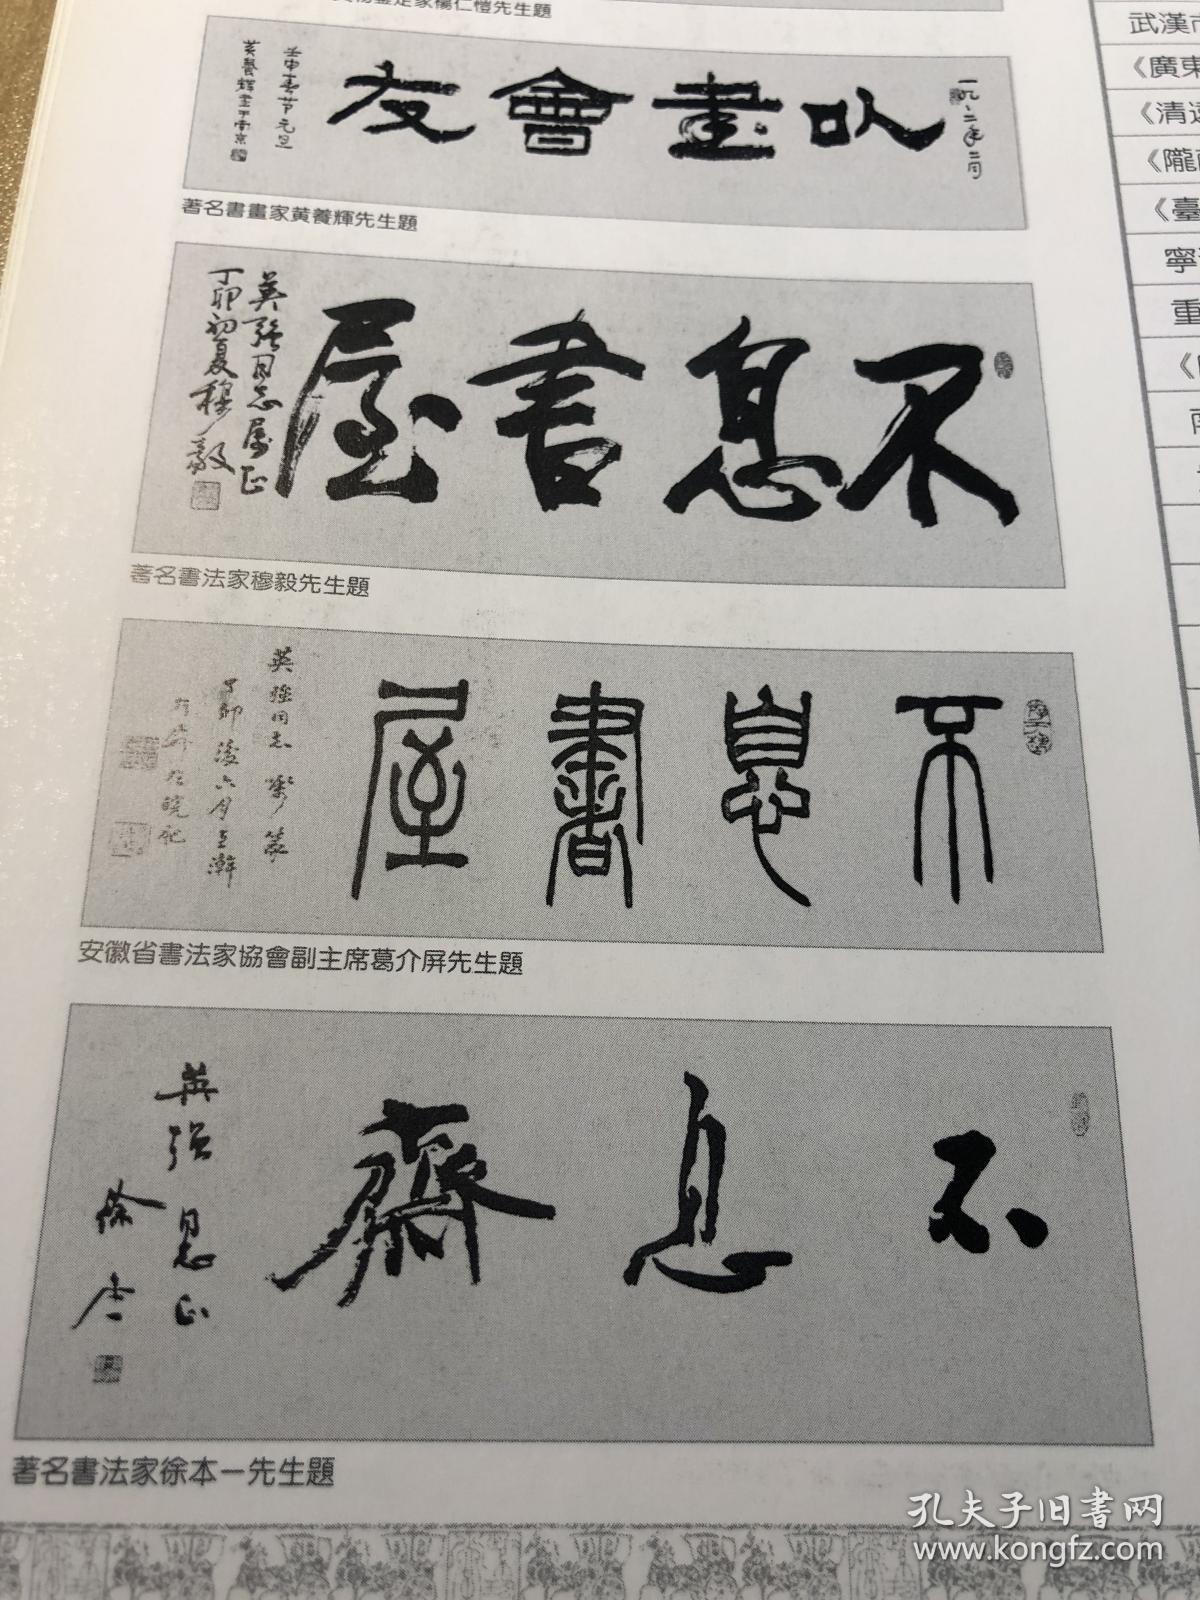 定家楊仁愷先生題
以畫會友
一九九二年二月
壬申春节元旦
黄養輝書于南京
著名書畫家黄養輝先生題
不息書屋
英強同志屬正
丁卯初夏穆毅
著名書法家穆毅先生題
不息書屋
英強同志
丁卯後六月
安徽省書法家協會副主席葛介屏先生題
不息齋
英強同志正
徐本一
著名書法家徐本一先生題
武漢市
《廣東
《清遠
《隴
《臺
寧
重
孔夫子旧書网
www.kongfz.com